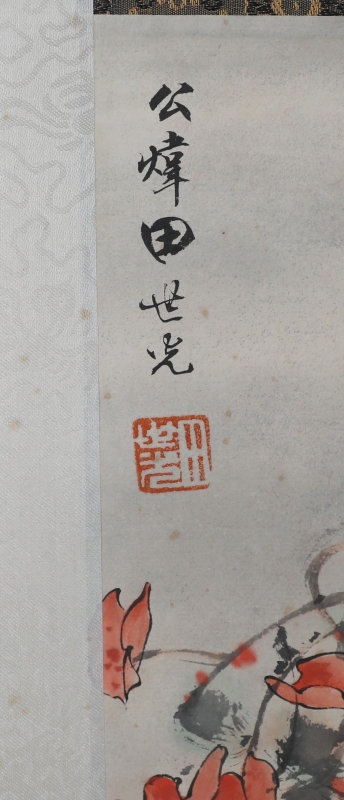 公煒田世光
田世光